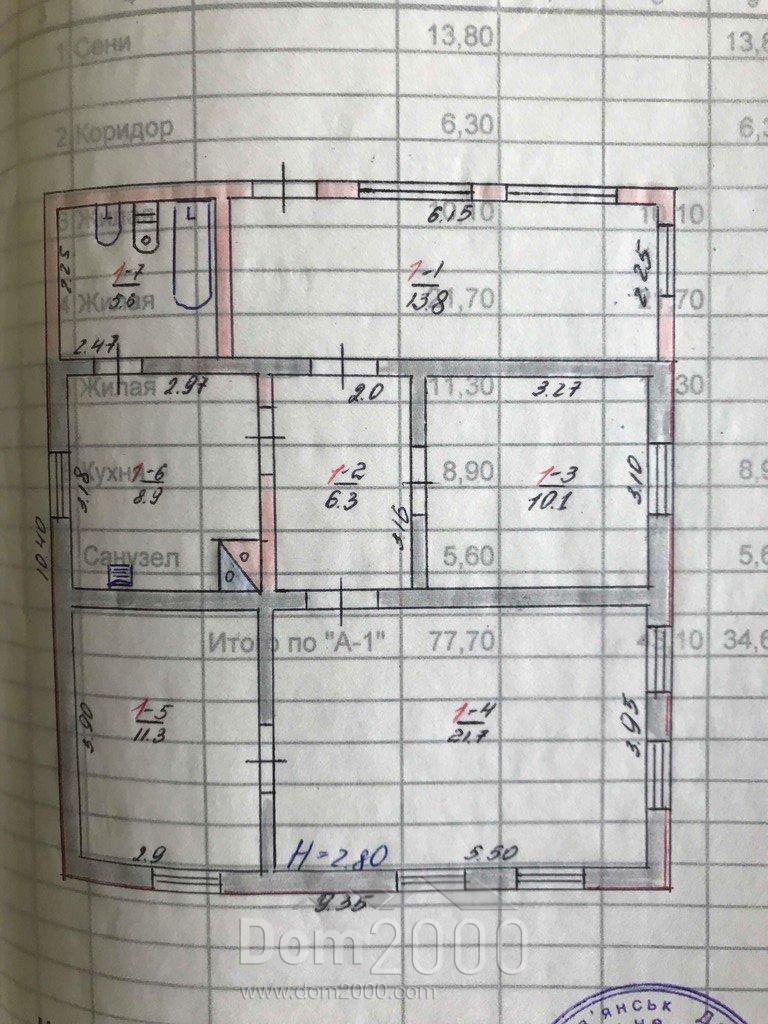 1 Сени 13,80 13,8
2 Коридор 6,30 6,3
6.15
3 Жилая 10,10 10,10
2.25
1-7
5.6
1-1
13.8
2.25
4 Жилая 21,70 21,70
2.47
Жилая 11,30 11,30
2.97
2.0
3.27
Кухня 8,90 8,9
3.18
1-6
8.9
1-2
6.3
3.16
1-3
10.1
3.10
10.40
Санузел 5,60 5,6
Итого по "А-1" 77,70 43,10 34,6
3.90
1-5
11.3
1-4
21.7
3.95
2.9
H=2.80
5.50
9.35
Dom2000
www.dom2000.com
'янськ